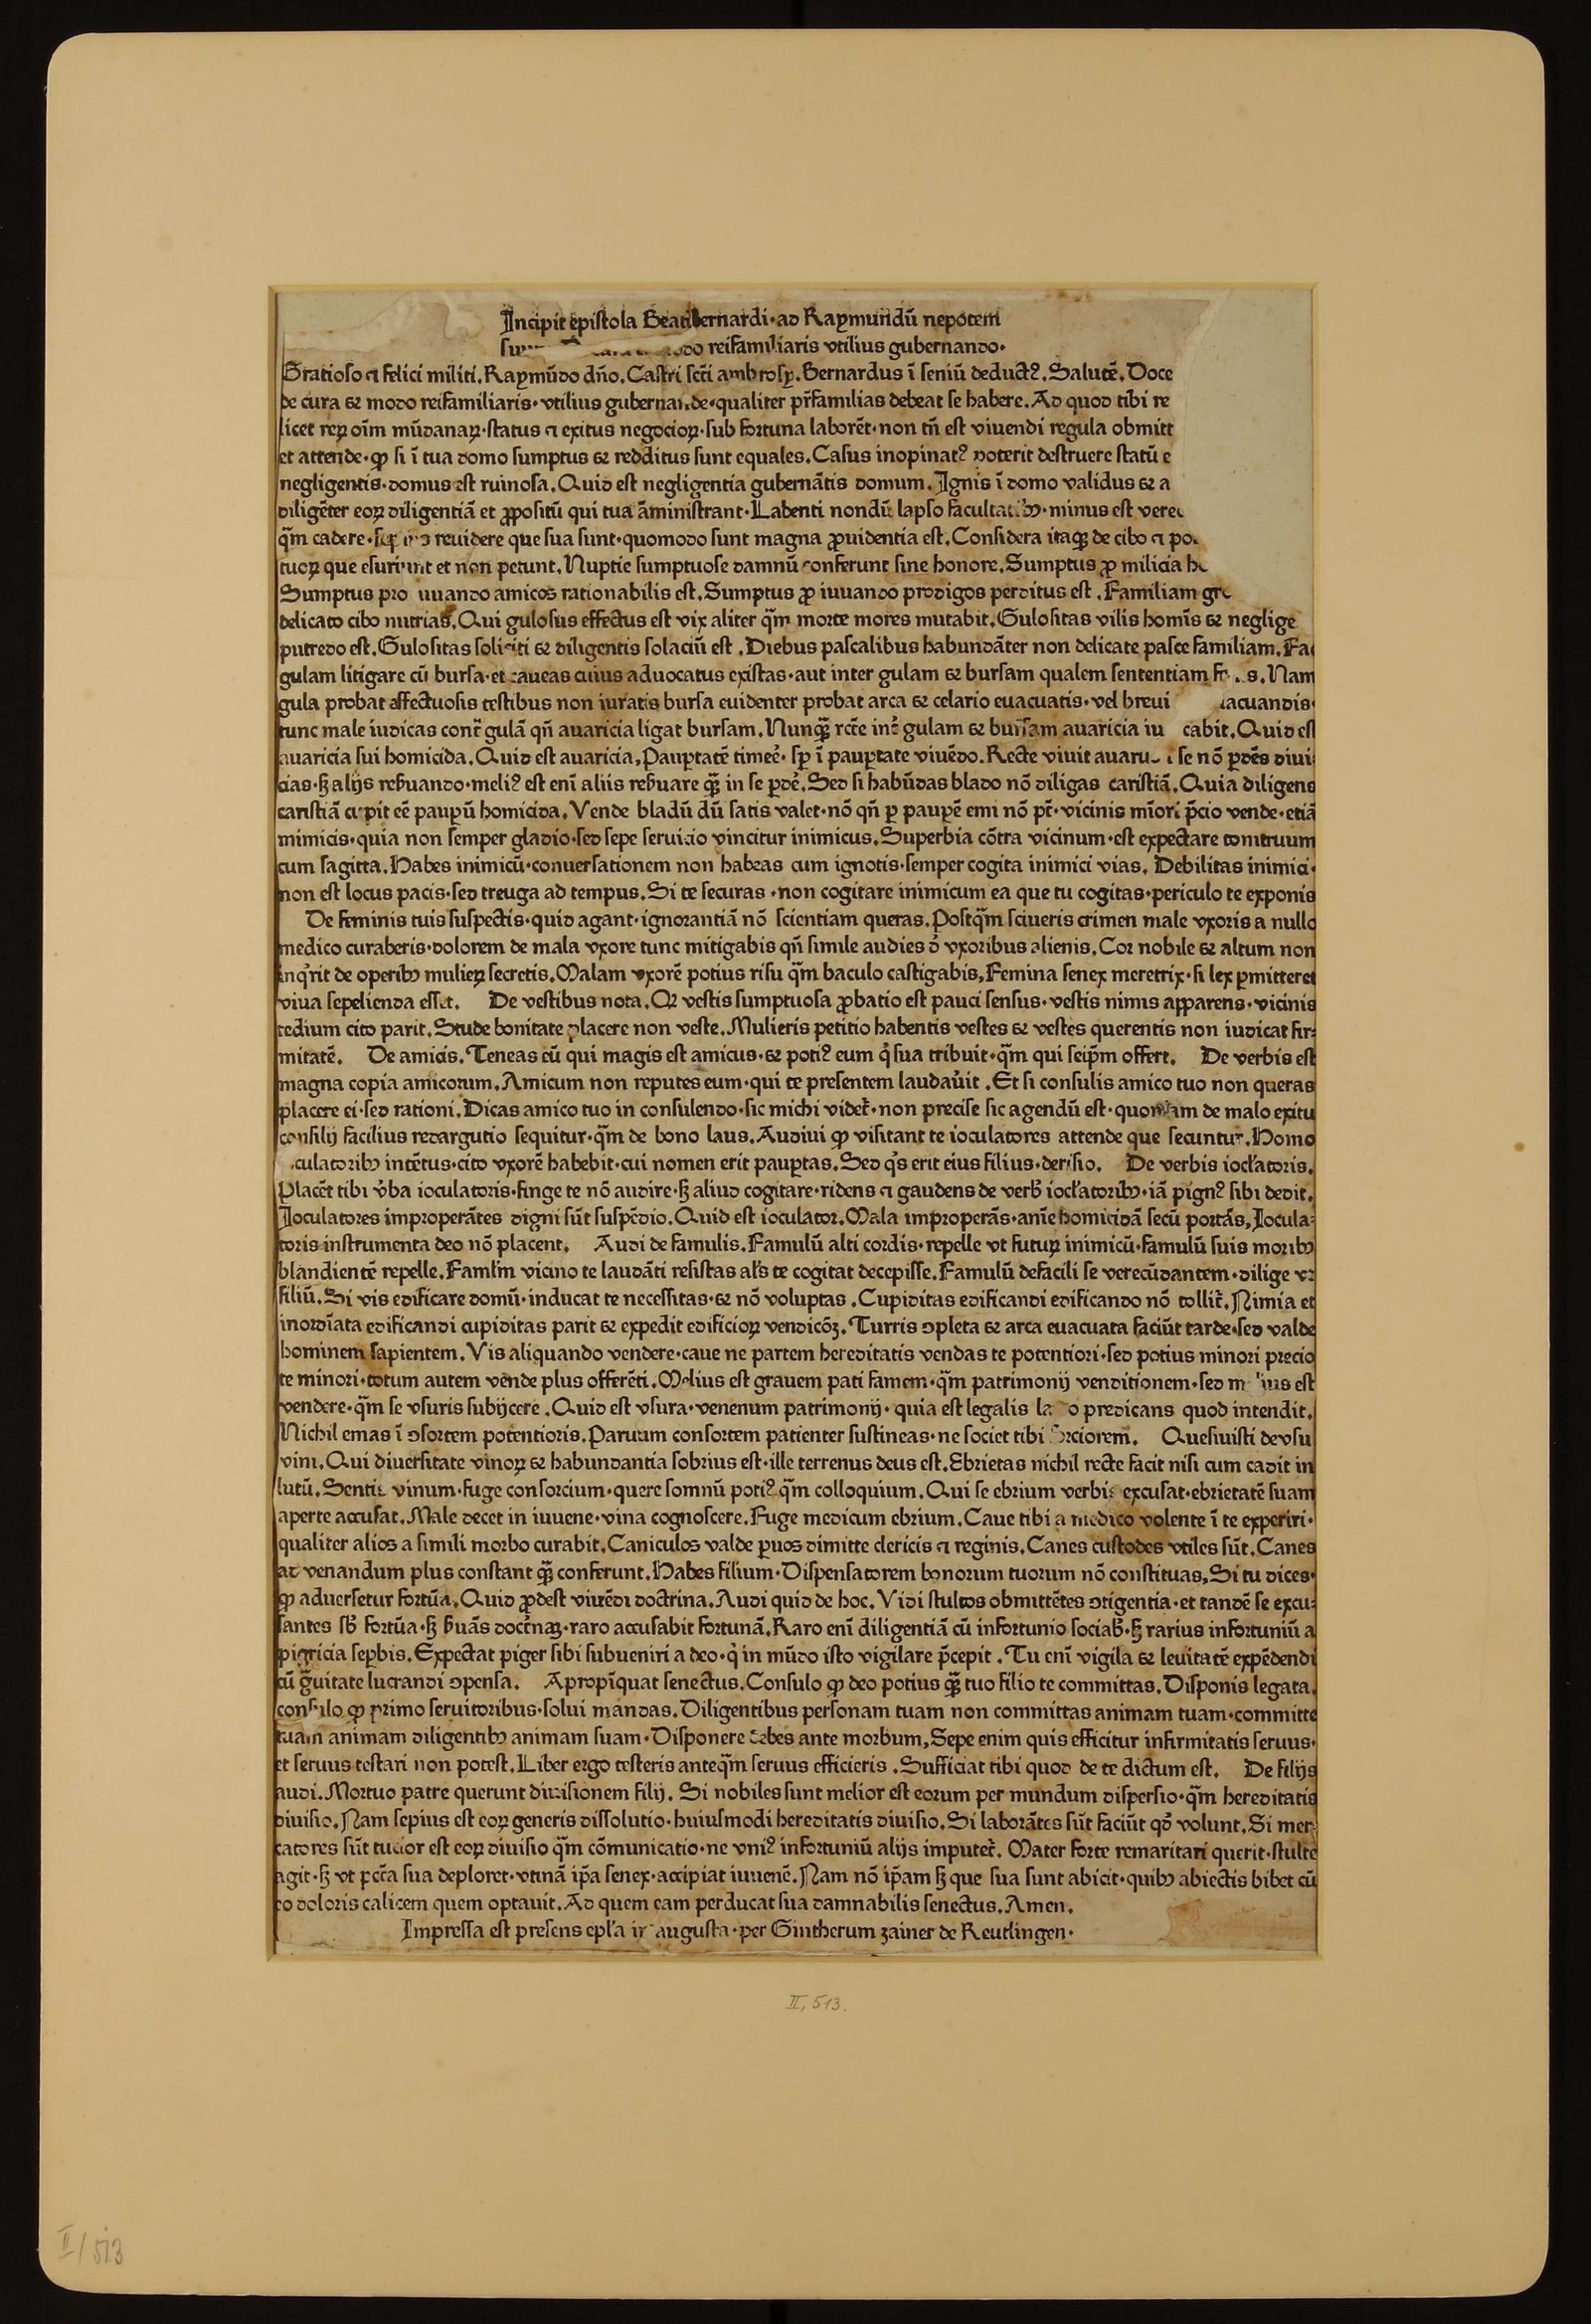 Incipit epistola Beati bernardi·ad Raymundū nepotem
reifamiliaris vtilius gubernando·
Gratioso ⁊ felici militi.Raymūdo dño.Castri scti ambrosij.Bernardus ī seniū deductꝰ.Salutē.Doce
de cura et modo reifamiliaris·vtilius gubernande·qualiter pr̄familias debeat se habere.Ad quod tibi re
licet reꝝ oīm mūdanaꝝ·status ⁊ exitus negocioꝝ·sub fortuna laborēt·non tn̄ est viuendi regula obmitt
et attende·ꝙ si ī tua domo sumptus et redditus sunt equales.Casus inopinatꝰ poterit destruere statū e
negligentis·domus est ruinosa.Quid est negligentia gubernātis domum.Ignis ī domo validus et a
diligēter eoꝝ diligentiā et ꝓpositū qui tua āministrant·Labenti nondū lapso facultatibꝫ·minus est vere
qm̄ cadere· reuidere que sua sunt·quomodo sunt magna ꝓuidentia est.Considera itaqꝫ de cibo ⁊ po
tuoꝝ que esuriunt et non petunt.Nuptie sumptuose damnū conferunt sine honore.Sumptus ꝓ milicia h
Sumptus pro iuuando amicos rationabilis est.Sumptus ꝓ iuuando prodigos perditus est .Familiam gr
delicato cibo nutrias.Qui gulosus effectus est vix aliter qm̄ morte mores mutabit.Gulositas vilis homīs et neglige
putredo est.Gulositas soliciti et diligentis solaciū est .Diebus pascalibus habundāter non delicate pasce familiam.Fac
gulam litigare cū bursa·et caueas cuius aduocatus existas·aut inter gulam et bursam qualem sententiam f s.Nam
gula probat affectuosis testibus non iuratis bursa euidenter probat arca et celario euacuatis·vel breui acuandis·
tunc male iudicas contr̄ gulā qn̄ auaricia ligat bursam.Nunqꝫ rcte int̄ gulam et bursam auaricia iu cabit.Quid est
auaricia sui homicida.Quid est auaricia,Pauꝑtatē timeē·sꝑ ī pauꝑtate viuēdo.Recte viuit auaru se nō ꝑdēs diui⸗
cias·sꝫ alijs reẜuando·meliꝰ est enī aliis reẜuare qꝫ in se ꝑdē.Sed si habūdas blado nō diligas caristiā.Quia diligens
caristiā cupit eē paupū homicida.Vende bladū dū satis valet·nō qn̄ ꝑ paupē emi nō pt̄·vicinis mīori p̄cio vende·etiā
inimicis·quia non semper gladio·sed sepe seruicio vincitur inimicus.Superbia cōtra vicinum·est expectare tonitruum
cum sagitta.Habes inimicū·conuersationem non habeas cum ignotis·semper cogita inimici vias. Debilitas inimici·
non est locus pacis·sed treuga ad tempus.Si te securas ·non cogitare inimicum ea que tu cogitas·periculo te exponis
De feminis tuis suspectis·quid agant·ignorantiā nō scientiam queras.Postqm̄ sciueris crimen male vxoris a nullo
medico curaberis·dolorem de mala vxore tunc mitigabis qn̄ simile audies d̄ vxoribus alienis.Cor nobile et altum non
inqͥrit de operibꝫ mulieꝝ secretis.Malam vxorē potius risu qm̄ baculo castigabis,Femina senex meretrix·si lex ꝑmitteret
viua sepelienda esset. De vestibus nota.Qꝛ vestis sumptuosa ꝓbatio est pauci sensus·vestis nimis apparens·vicinis
tedium cito parit.Stude bonitate placere non veste.Mulieris petitio habentis vestes et vestes querentis non iudicat fir⸗
mitatē. De amicis.Teneas cū qui magis est amicus·et potiꝰ eum qͥ sua tribuit·qm̄ qui seip̄m offert. De verbis est
magna copia amicorum.Amicum non reputes eum·qui te presentem laudauit .Et si consulis amico tuo non queras
placere ei·sed rationi.Dicas amico tuo in consulendo·sic michi videt̄·non precise sic agendū est·quoniam de malo exitu
consilij facilius redargutio sequitur·qm̄ de bono laus.Audiui ꝙ visitant te ioculatores attende que secuntur.Homo
culatoribꝫ intētus·cito vxorē habebit·cui nomen erit pauꝑtas.Sed qͥs erit eius filius·derisio. De verbis ioclatoris.
Placēt tibi v̄ba ioculatoris·finge te nō audire·sꝫ aliud cogitare·ridens ⁊ gaudens de verbꝭ ioclatoribꝫ·iā pignꝰ sibi dedit.
Ioculatores improperātes digni sūt suspēdio.Quid est ioculator.Mala improperās·anīe homicidā secū portās,Iocula⸗
toris instrumenta deo nō placent. Audi de famulis.Famulū alti cordis·repelle vt futuꝝ inimicū·famulū suis moribꝫ
blandientē repelle.Famlm̄ vicino te laudāti resistas als̄ te cogitat decepisse.Famulū defacili se verecūdantem·dilige vt
filiū.Si vis edificare domū·inducat te necessitas·et nō voluptas .Cupiditas edificandi edificando nō tollit̄.Nimia et
inordīata edificandi cupiditas parit et expedit edificioꝝ vendicōꝫ.Turris ꝯpleta et arca euacuata faciūt tarde·sed valde
hominem sapientem.Vis aliquando vendere·caue ne partem hereditatis vendas te potentiori·sed potius minori precio
te minori·totum autem vēnde plus offerēti.Melius est grauem pati famem·qm̄ patrimonij venditionem·sed m ius est
vendere·qm̄ se vsuris subijcere .Quid est vsura·venenum patrimonij· quia est legalis la o predicans quod intendit.
Nichil emas ī ꝯsortem potentioris.Paruum consortem patienter sustineas·ne societ tibi forciorem. Quesiuisti de vsu
vini.Qui diuersitate vinoꝝ et habundantia sobrius est·ille terrenus deus est.Ebrietas nichil recte facit nisi cum cadit in
lutū.Sentis vinum·fuge consorcium·quere somnū potiꝰ qm̄ colloquium.Qui se ebrium verbis excusat·ebrietatē suam
aperte accusat.Male decet in iuuene·vina cognoscere.Fuge medicum ebrium.Caue tibi a medico volente ī te experiri·
qualiter alios a simili morbo curabit.Caniculos valde ꝑuos dimitte clericis ⁊ reginis.Canes custodes vtiles sūt.Canes
ad venandum plus constant qꝫ conferunt.Habes filium·Dispensatorem bonorum tuorum nō constituas,Si tu dices·
ꝙ aduersetur fortūa.Quid ꝓdest viuēdi doctrina.Audi quid de hoc.Vidi stultos obmittētes ꝯtigentia·et tandē se excu⸗
santes sb̄ fortūa·sꝫ ẜuās doctrīaꝫ·raro accusabit fortunā.Raro enī diligentiā cū infortunio sociabꝭ·sꝫ rarius infortuniū a
pigricia seꝑbis.Expectat piger sibi subueniri a deo·qͥ in mūdo isto vigilare p̄cepit .Tu enī vigila et leuitatē expēdendi
cū gͣuitate lucrandi ꝯpensa. Apropīquat senectus.Consulo ꝙ deo potius qꝫ tuo filio te committas.Disponis legata.
consulo ꝙ primo seruitoribus·solui mandas.Diligentibus personam tuam non committas animam tuam·committe
tuam animam diligentibꝫ animam suam·Disponere debes ante morbum,Sepe enim quis efficitur infirmitatis seruus·
et seruus testari non potest.Liber ergo testeris anteqm̄ seruus efficieris .Sufficiat tibi quod de te dictum est. De filijs
audi.Mortuo patre querunt diuisionem filij. Si nobiles sunt melior est eorum per mundum dispersio·qm̄ hereditatis
diuisio.Nam sepius est eoꝝ generis dissolutio·huiusmodi hereditatis diuisio.Si laborātes sūt faciūt qd̄ volunt.Si mer⸗
catores sūt tucior est eoꝝ diuisio qm̄ cōmunicatio·ne vniꝰ infortuniū alijs imputet̄. Mater forte remaritari querit·stulte
agit·sꝫ vt pctā sua deploret·vtinā ip̄a senex·accipiat iuuenē.Nam nō ip̄am sꝫ que sua sunt abicit·quibꝫ abiectis bibet cū
eo doloris calicem quem optauit.Ad quem eam perducat sua damnabilis senectus.Amen.
Impressa est presens epl̄a in augusta·per Gintherum zainer de Reutlingen·
II, 513.
II/513